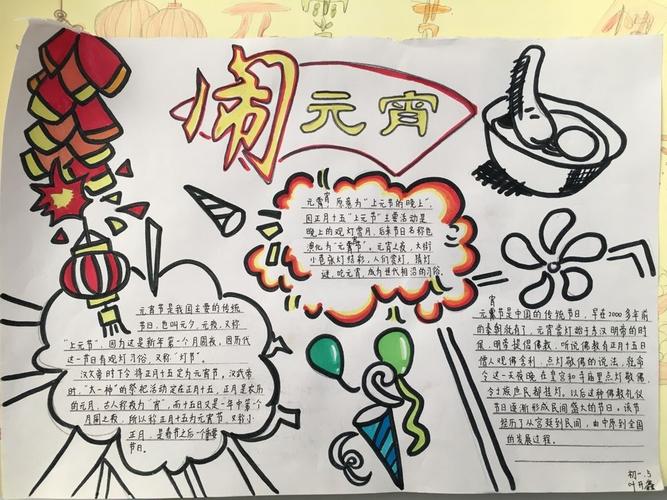 闹元宵
元宵 原意为"上元节的晚上",
因正月十五"上元节"主要活动是
晚上的观灯赏月,后来节日名称也
演化为"元宵节"。元宵之夜,大街
小巷张灯结彩,人们赏灯,猜灯
谜,吃元宵,成为世代相沿的习俗。
元宵节是我国主要的传统
节日,也叫元夕、元夜,又称
"上元节",因为这是新年第一个月圆夜,因历代
这一节日有观灯习俗,又称"灯节"。
汉文帝时下令将正月十五定为元宵节,汉武帝
时,"太一神"的祭祀活动定在正月十五,正月是农历
的元月,古人称夜为"宵",而十五日又是一年中第一个
月圆之夜,所以称正月十五为元宵节,又称小
正月,是春节之后一个重要
节日。
元宵节是中国的传统节日,早在2000多年前
的秦朝就有了,元宵赏灯始于东汉明帝的时
候,明帝提倡佛教,听说佛教有正月十五日
僧人观佛舍利,点灯敬佛的说法,就命
令这一天夜晚在皇宫和寺庙里点灯敬佛,
令士族庶民都挂灯。以后这种佛教礼仪
节日逐渐形成民间盛大的节日。该节
经历了从宫廷到民间,由中原到全国
的发展过程。
初一.3